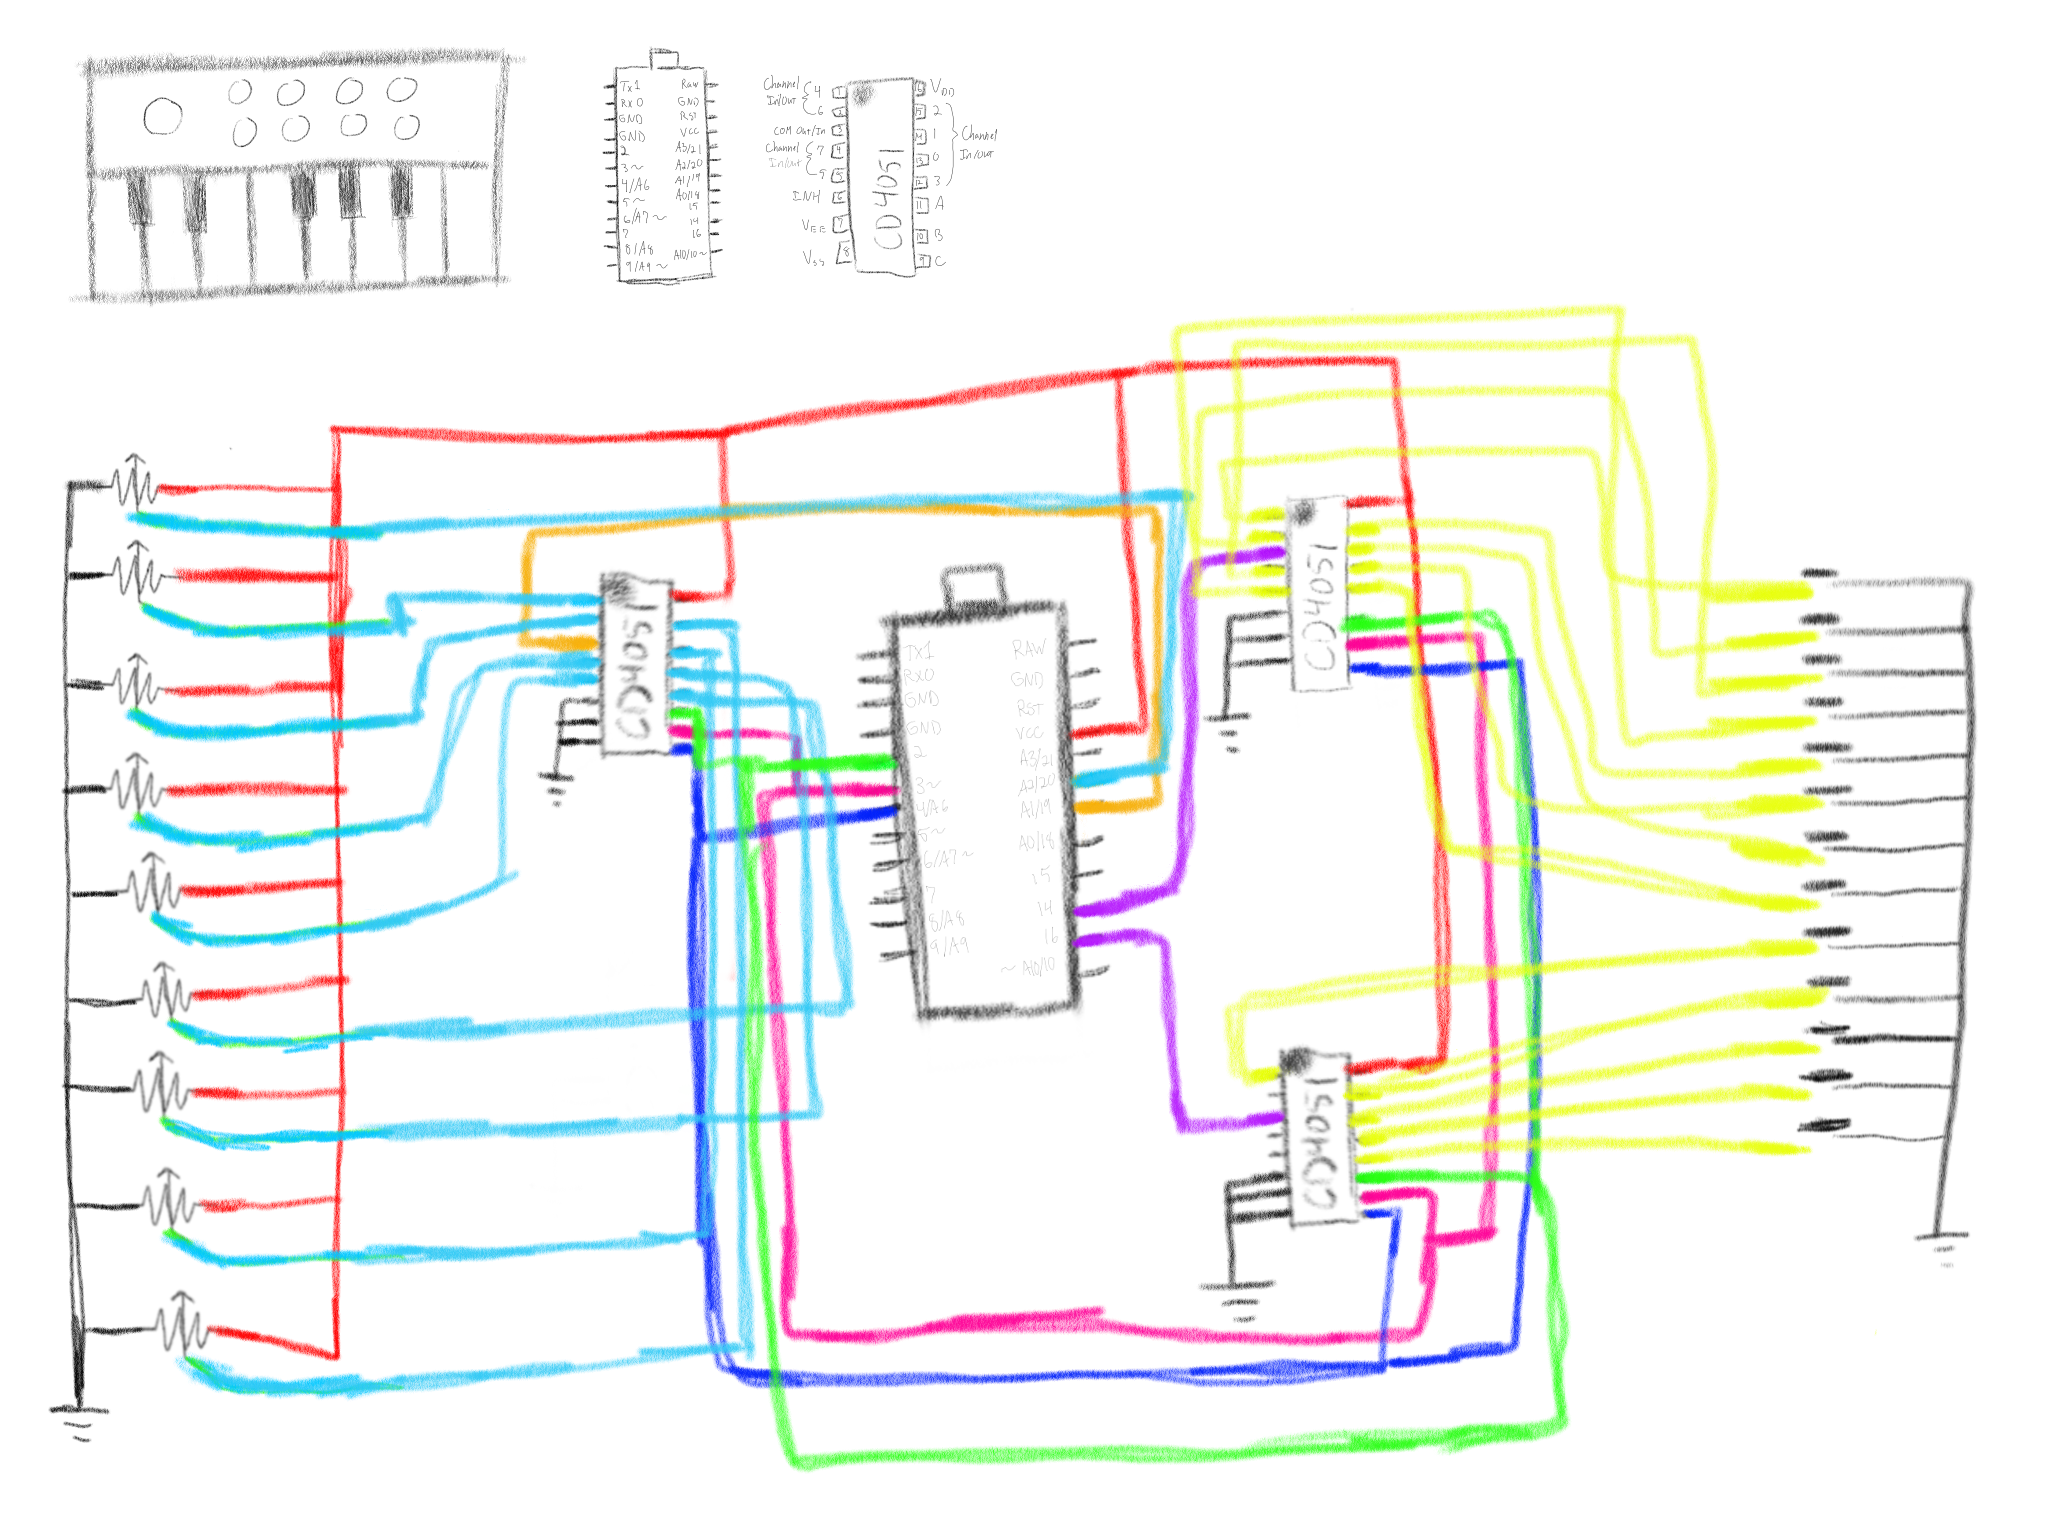 Tx1
Rx0
GND
GND
2
3~
4/A6
5~
6/A7~
7
8/A8
9/A9~
Raw
GND
Rst
VCC
A3/21
A2/20
A1/19
A0/18
15
14
16
A10/10~
Channel
In/Out
4
6
COM Out/In
Channel
In/Out
7
5
INH
VEE
VSS
1
2
3
4
5
6
7
8
CD4051
16
15
14
13
12
11
10
9
VDD
2
1
0
3
A
B
C
Channel
In/Out
CD4051
TX1
RX0
GND
GND
2
3~
4/A6
5~
6/A7~
7
8/A8
9/A9
RAW
GND
RST
VCC
A3/21
A2/20
A1/19
A0/18
15
14
16
~A10/10
CD4051
CD4051